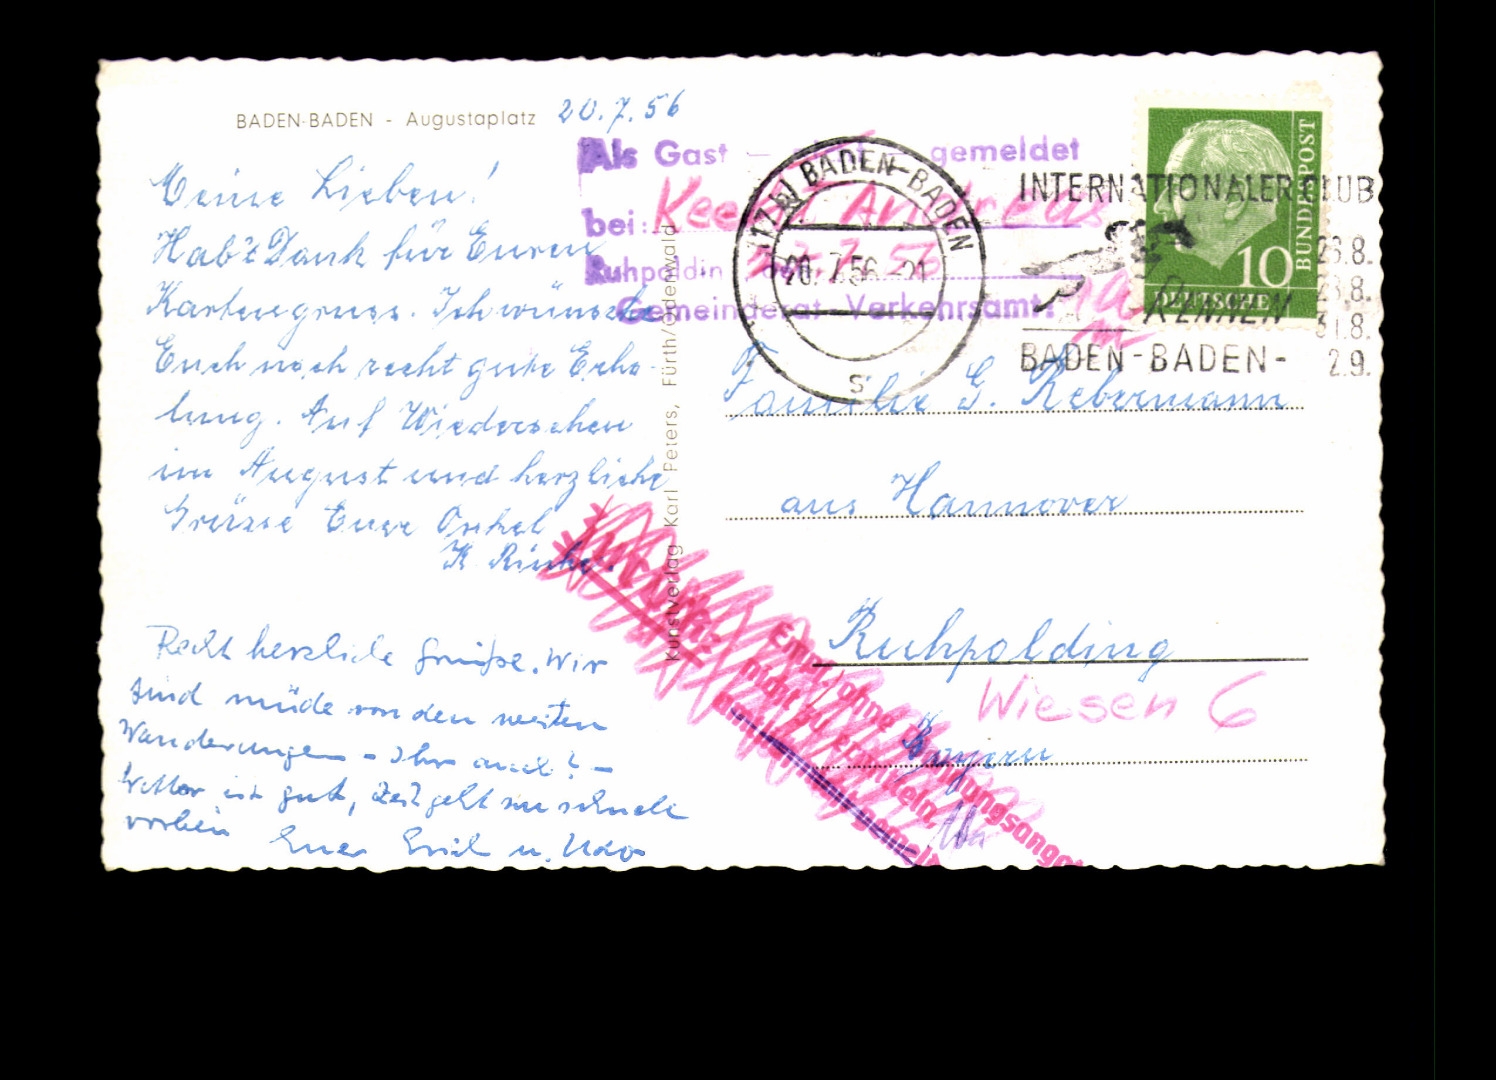 BADEN-BADEN - Augustaplatz 20.7.56
Meine Lieben!
Habt Dank für Euren
Kartengruss. Ich wünsche
Euch noch recht gute Erho-
lung. Auf Wiedersehen
im August und herzliche
Grüsse Euer Onkel
K.
Recht herzliche Grüße. Wir
sind müde von den weiten
Wanderungen - Ihr auch? -
Wetter ist gut, Zeit geht zu schnell
vorbei Euer u. Udo
Kunstverlag Karl Peters, Fürth/Odenwald
Als Gast — gemeldet
bei:
Ruhpolding, den 23.7.56
Gemeinderat Verkehrsamt:
(17b) BADEN-BADEN
20.7.56-21
s
INTERNATIONALER CLUB
RENNEN
BADEN-BADEN-
23.8.
31.8.
2.9.
10
DEUTSCHE
BUNDESPOST
Familie G. Rebermann
aus Hannover
Ruhpolding
Wiesen 6
Bayern
Zurück
Empf. ohne Wohnungsangabe
nicht zu ermitteln,